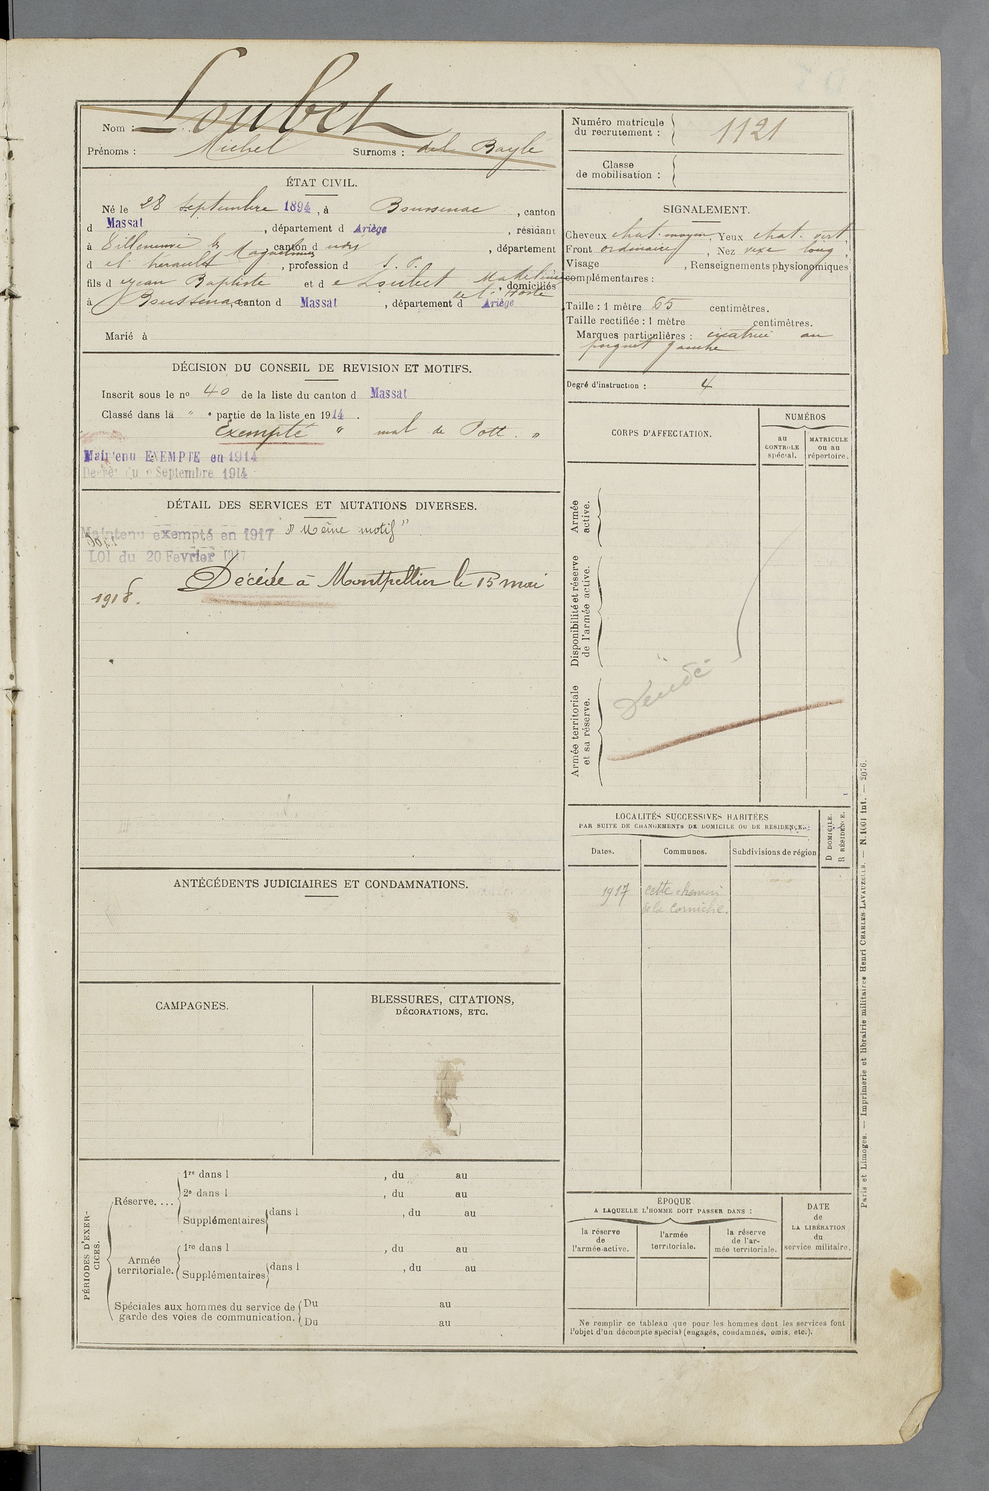 Nom : Loubet
Prénoms : Michel Surnoms : del Bayle
ÉTAT CIVIL.
Né le 28 septembre 1894, à Boussenac, canton
d Massat, département d Ariège, résidant
à Villeneuve les Maguelonne, canton d udos, département
d e l'hérault, profession d S. P.
fils d e Jean Baptiste et d e Loubet Madeleine, domiciliés
à Boussenac canton d Massat, département d e l'Ariège
Marié à
DÉCISION DU CONSEIL DE REVISION ET MOTIFS.
Inscrit sous le no 40 de la liste du canton d Massat
Classé dans la " e partie de la liste en 1914.
Exempté " mal de Pott. "
Maintenu EXEMPTE en 1914
Décret du 9 Septembre 1914
DÉTAIL DES SERVICES ET MUTATIONS DIVERSES.
Maintenu exempté en 1917 " Même motif "
LOI du 20 Fevrier 1917
Décédé à Montpellier le 15 mai
1918.
ANTÉCÉDENTS JUDICIAIRES ET CONDAMNATIONS.
CAMPAGNES.
BLESSURES, CITATIONS,
DÉCORATIONS, ETC.
PÉRIODES D'EXER-
CICES.
Réserve....
1re dans l , du au
2e dans l , du au
Supplémentaires dans l , du au
Armée
territoriale.
1re dans l , du au
Supplémentaires dans l , du au
Spéciales aux hommes du service de
garde des voies de communication.
Du au
Du au
Numéro matricule
du recrutement : 1121
Classe
de mobilisation :
SIGNALEMENT.
Cheveux chat. moyen, Yeux chat. vert
Front ordinaire, Nez vexe long,
Visage , Renseignements physionomiques
complémentaires :
Taille : 1 mètre 65 centimètres.
Taille rectifiée : 1 mètre centimètres.
Marques particulières : cicatrice au
poignet gauche
Degré d'instruction : 4
CORPS D'AFFECTATION.
NUMÉROS
au
CONTROLE
spécial.
MATRICULE
ou au
répertoire.
Armée
active.
Disponibilité et réserve
de l'armée active.
Armée territoriale
et sa réserve.
Décédé
LOCALITÉS SUCCESSIVES HABITÉES
PAR SUITE DE CHANGEMENTS DE DOMICILE OU DE RÉSIDENCE.
Dates.
Communes.
Subdivisions de région
D DOMICILE.
R RÉSIDENCE.
1917 Cette chemin
de la Corniche.
ÉPOQUE
A LAQUELLE L'HOMME DOIT PASSER DANS :
la réserve
de
l'armée active.
l'armée
territoriale.
la réserve
de l'ar-
mée territoriale.
DATE
de
LA LIBÉRATION
du
service militaire.
Ne remplir ce tableau que pour les hommes dont les services font
l'objet d'un décompte spécial (engagés, condamnés, omis, etc.).
Paris et Limoges. — Imprimerie et librairie militaires Henri CHARLES LAVAUZELLE. — N. 1001 int. — 2076.